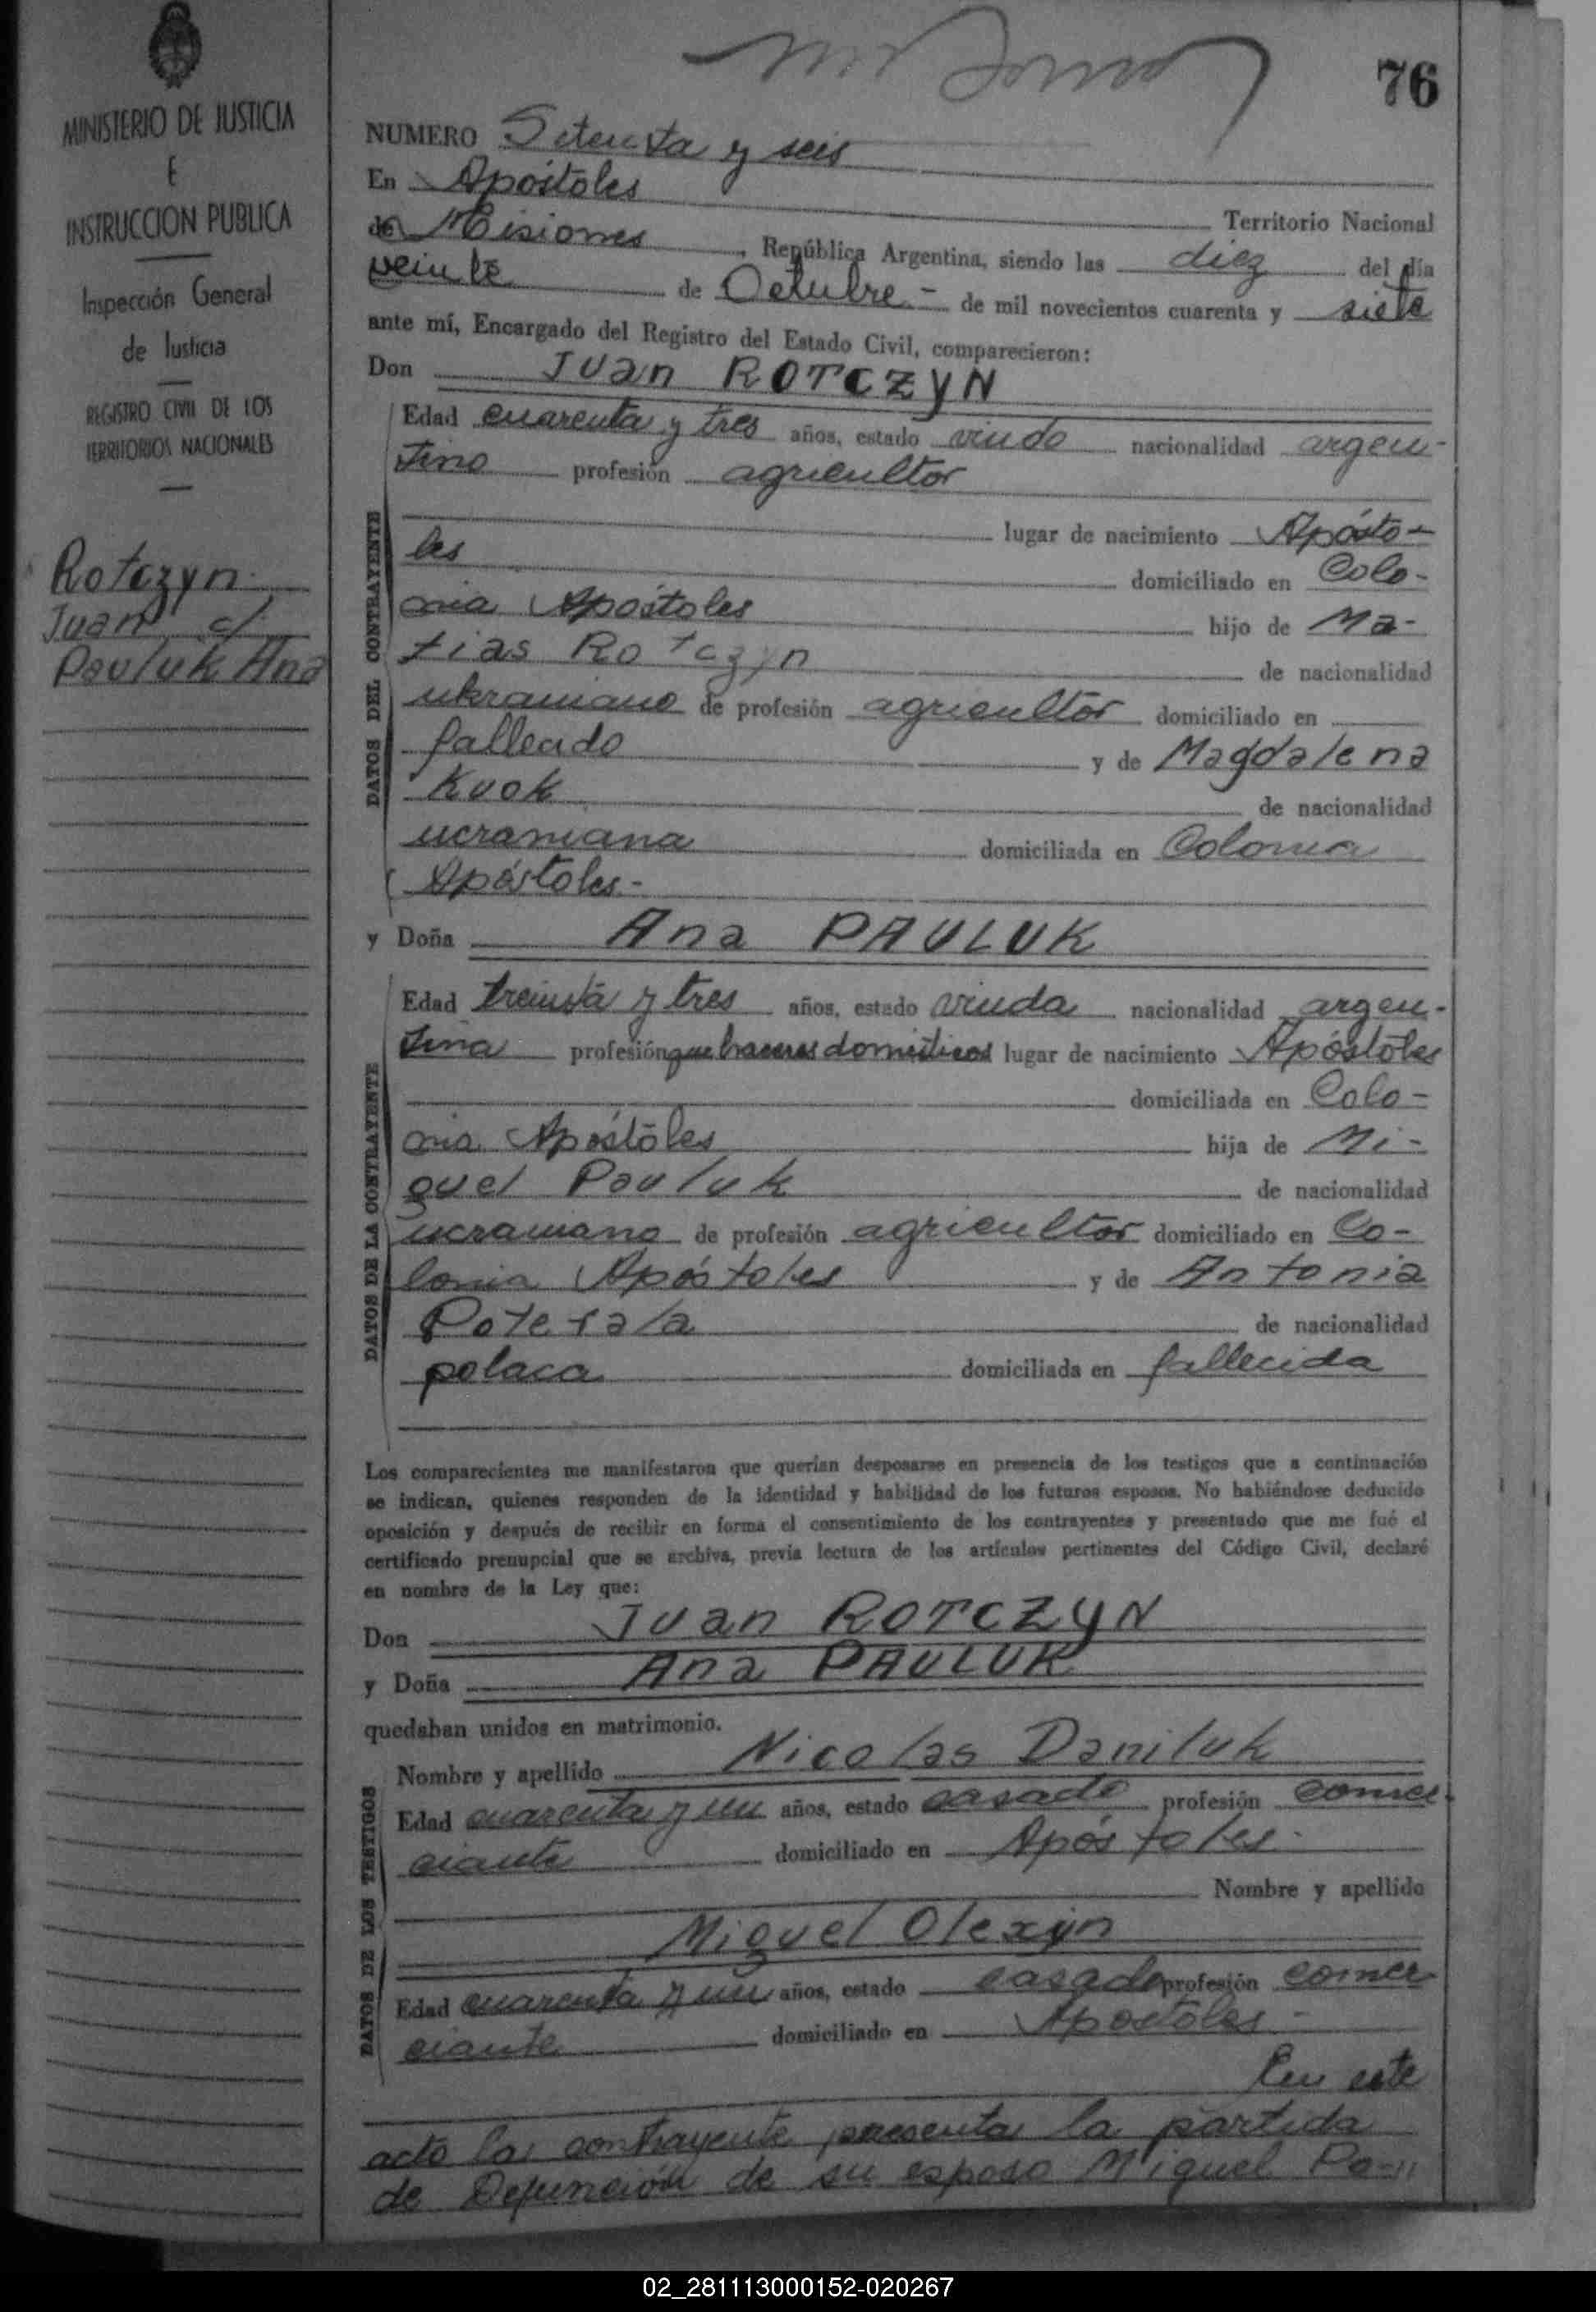 MINISTERIO DE JUSTICIA
E
INSTRUCCION PUBLICA
Inspección General
de Justicia
REGISTRO CIVIL DE LOS
TERRITORIOS NACIONALES
Rotczyn
Juan c/
Pauluk Ana
76
NUMERO Setenta y seis
En Apóstoles
Territorio Nacional
de Misiones, República Argentina, siendo las diez del día
veinte de Octubre.- de mil novecientos cuarenta y siete
ante mí, Encargado del Registro del Estado Civil, comparecieron:
Don Juan ROTCZYN
DATOS DEL CONTRAYENTE
Edad cuarenta y tres años, estado viudo nacionalidad argen-
tino profesión agricultor
lugar de nacimiento Apósto-
les domiciliado en Colo-
nia Apóstoles hijo de Ma-
tias Rotczyn de nacionalidad
ukraniano de profesión agricultor domiciliado en
fallecido y de Magdalena
Kuok de nacionalidad
ucraniana domiciliada en Colonia
Apóstoles.-
y Doña Ana PAULUK
DATOS DE LA CONTRAYENTE
Edad treinta y tres años, estado viuda nacionalidad argen-
tina profesión quehaceres domésticos lugar de nacimiento Apóstoles
domiciliada en Colo-
nia Apóstoles hija de Mi-
guel Pauluk de nacionalidad
ucraniano de profesión agricultor domiciliado en Co-
lonia Apóstoles y de Antonia
Poterala de nacionalidad
polaca domiciliada en fallecida
Los comparecientes me manifestaron que querían desposarse en presencia de los testigos que a continuación
se indican, quienes responden de la identidad y habilidad de los futuros esposos. No habiéndose deducido
oposición y después de recibir en forma el consentimiento de los contrayentes y presentado que me fué el
certificado prenupcial que se archiva, previa lectura de los artículos pertinentes del Código Civil, declaré
en nombre de la Ley que:
Don Juan ROTCZYN
y Doña Ana PAULUK
quedaban unidos en matrimonio.
DATOS DE LOS TESTIGOS
Nombre y apellido Nicolas Daniluk
Edad cuarenta y un años, estado casado profesión comer-
ciante domiciliado en Apóstoles.-
Nombre y apellido
Miguel Olexyn
Edad cuarenta y un años, estado casado profesión comer
ciante domiciliado en Apóstoles-
En este
acto la contrayente presenta la partida
de Defunción de su esposo Miguel Po-
02_281113000152-020267